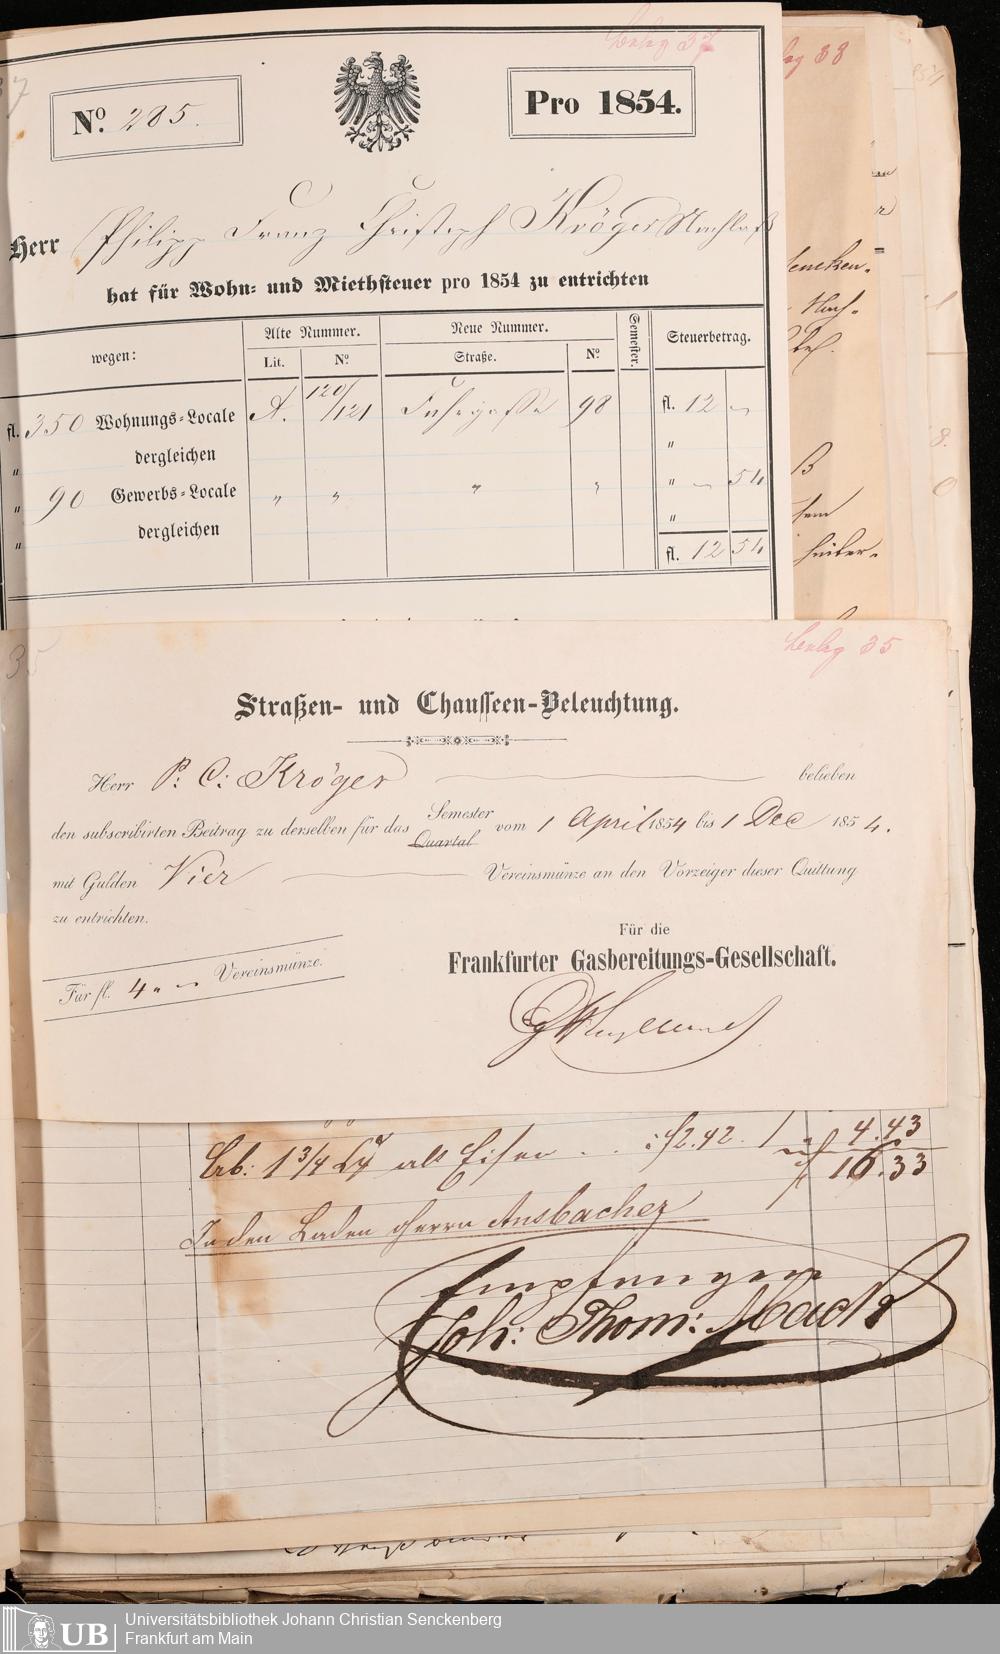 37
Beleg 37
Nº. 285.
Pro 1854.
Herr Philipp Franz Christoph Kröger Nachlaß
hat für Wohn- und Miethsteuer pro 1854 zu entrichten
wegen:
Alte Nummer.
Neue Nummer.
Semester.
Steuerbetrag.
Lit.
Nº.
Straße.
Nº.
fl. 350 Wohnungs-Locale A. 120/121 Fahrgasse 98 fl. 12 —
" dergleichen "
" 90 Gewerbs-Locale " " " " " — 54
" dergleichen "
fl. 12 54
33
35
Beleg 35
Straßen- und Chausseen-Beleuchtung.
Herr P: C: Kröger belieben
den subscribirten Beitrag zu derselben für das Semester Quartal vom 1 April 1854 bis 1 Dec 1854.
mit Gulden Vier Vereinsmünze an den Vorzeiger dieser Quittung
zu entrichten.
Für die
Frankfurter Gasbereitungs-Gesellschaft.
Für fl. 4 " — Vereinsmünze.
4.43
1 3/4 als Eisen . . 2.42.
16.33
In den Laden Herrn Ansbacher
Empfangen
Joh: Thom: Mack
Universitätsbibliothek Johann Christian Senckenberg
UB
Frankfurt am Main